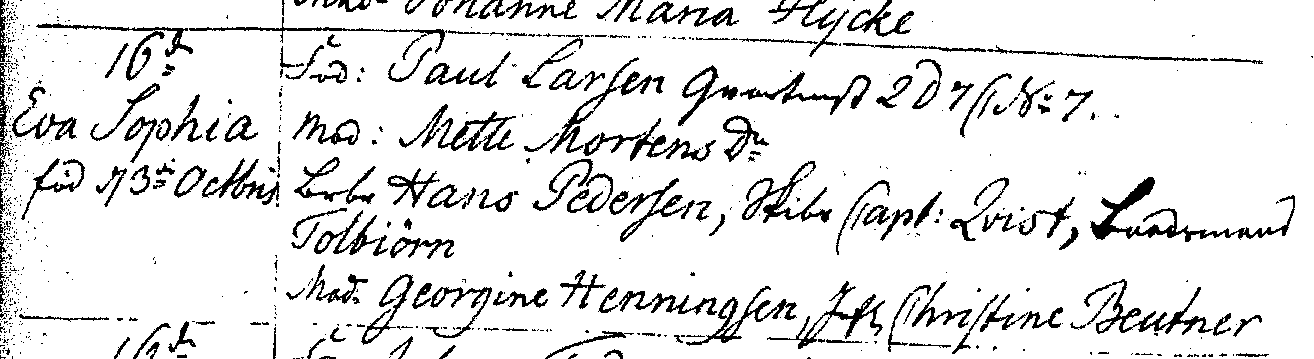 Johanne Maria Hycke
16de
Eva Sophia
fød d 13de Octbris
Fad: Paul Larsen Quartmst 2 D 7 C No 7.
Mod: Mette Mortens Dr
Hans Pedersen, Skibs Capt: Qvist, Baadsmand
Tolbiörn
Mad. Georgine Henningsen, Jfr Christine Beutner
16de